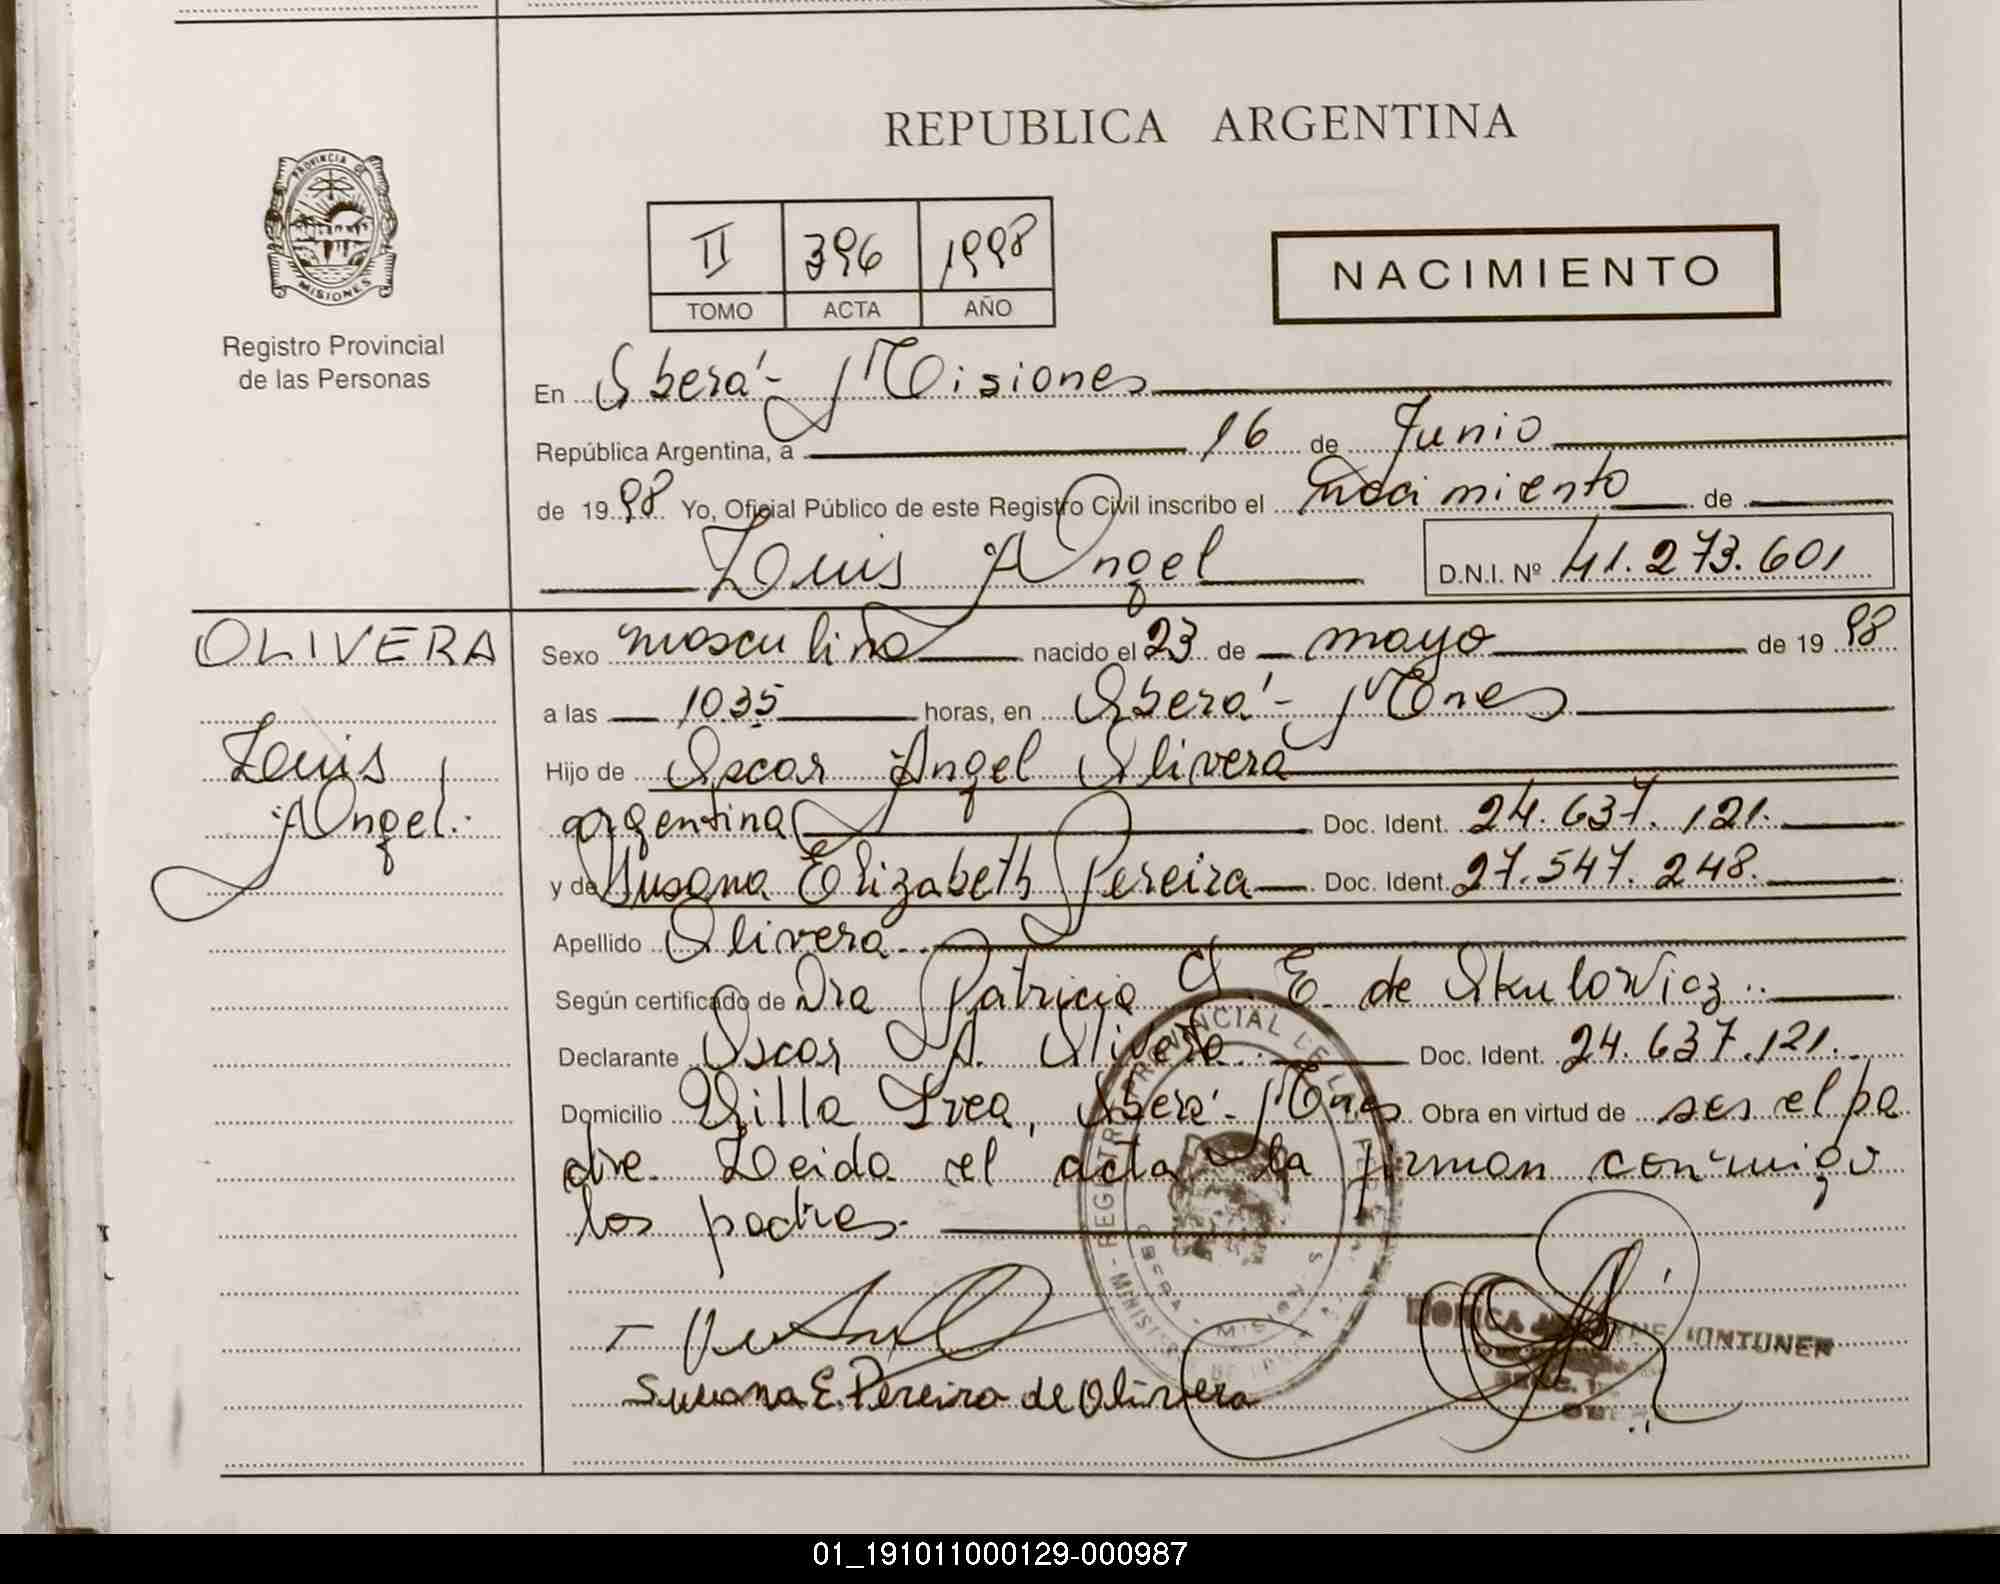 REPUBLICA ARGENTINA
PROVINCIA DE MISIONES
Registro Provincial
de las Personas
II 396 1998
TOMO ACTA AÑO
NACIMIENTO
En Oberá - Misiones
República Argentina, a 16 de Junio
de 1998 Yo, Oficial Público de este Registro Civil inscribo el nacimiento de
Luis Angel D.N.I. Nº 41.273.601
OLIVERA
Luis
Angel.
Sexo masculino nacido el 23 de mayo de 1998
a las 10.35 horas, en Oberá - Mnes
Hijo de Oscar Angel Olivera
argentina Doc. Ident. 24.637.121.
y de Susana Elizabeth Pereira Doc. Ident. 27.547.248.
Apellido Olivera
Según certificado de Dra Patricia E. de Skulowicz
Declarante Oscar A. Olivera Doc. Ident. 24.637.121.
Domicilio Villa Svea, Oberá - Mnes Obra en virtud de ser el pa
dre. Leida el acta la firman conmigo
los padres.
REGISTRO PROVINCIAL DE LAS
OBERA - MISIONES
Susana E. Pereira de Olivera
MONICA
01_191011000129-000987